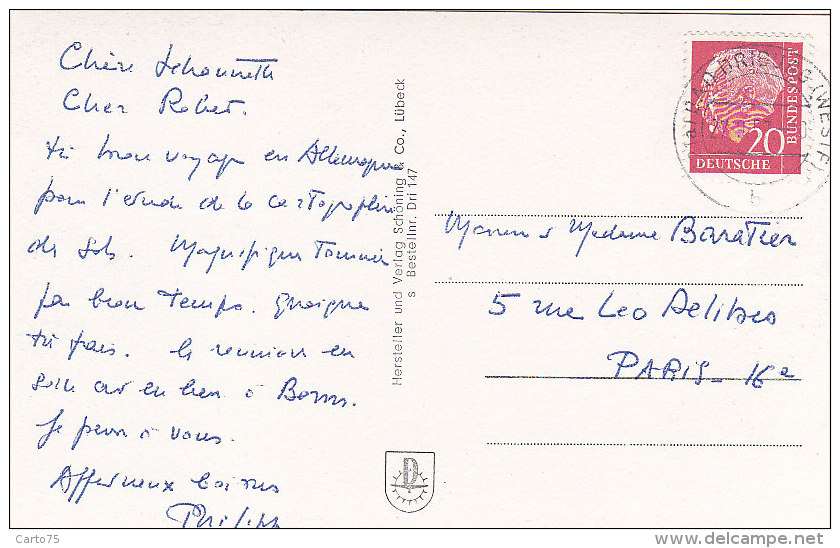 Chère
Cher Robert.
bon voyage en Allemagne
pour l'étude de la cartographie
de Sols. Magnifique Tournée
beau temps. Quoique
frais. la reunion en
Salle a eu lieu à Bonn.
Je pense à vous.
Affectueux baisers
Philipp
Hersteller und Verlag Schöning & Co., Lübeck
s Bestellnr. Dri 147
BUNDESPOST
20
DEUTSCHE
BAD DRIBURG (WESTF)
b
Monsieur & Madame Baratier
5 rue Leo Delibes
PARIS - 16e
Carto75
www.delcampe.net